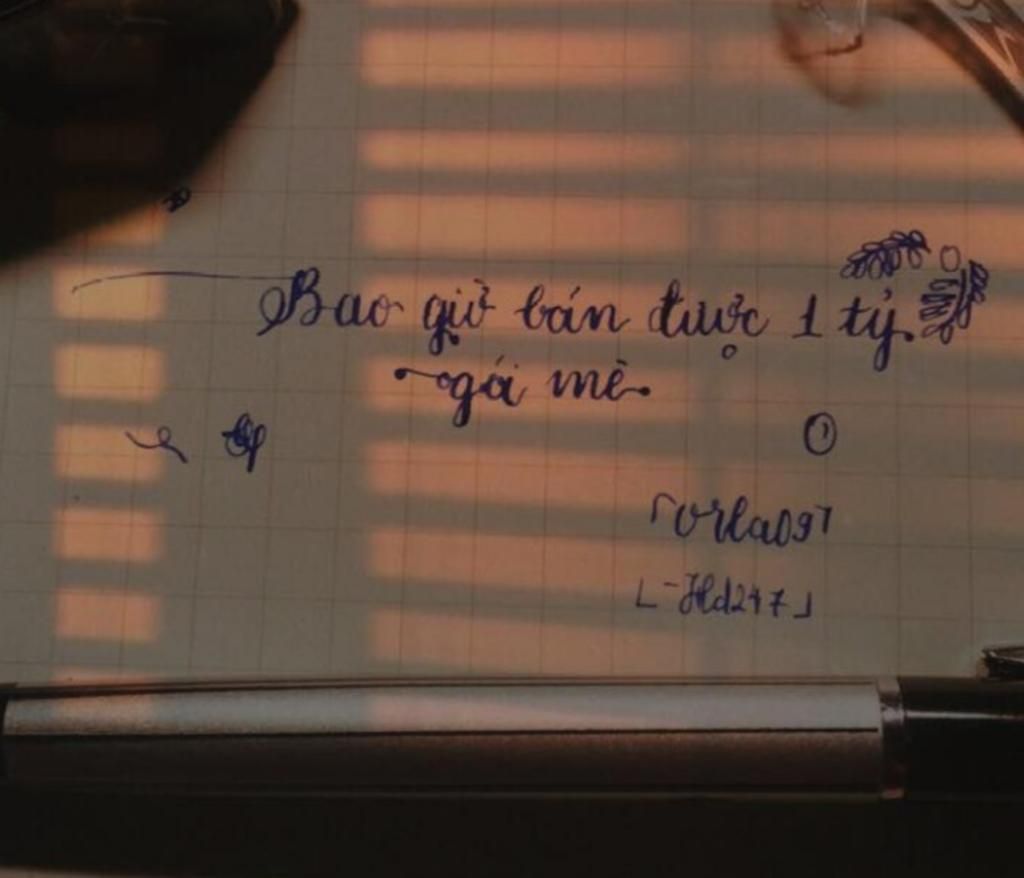 Bao giờ bán được 1 tỷ
gói mè.
orla097
-Hd247